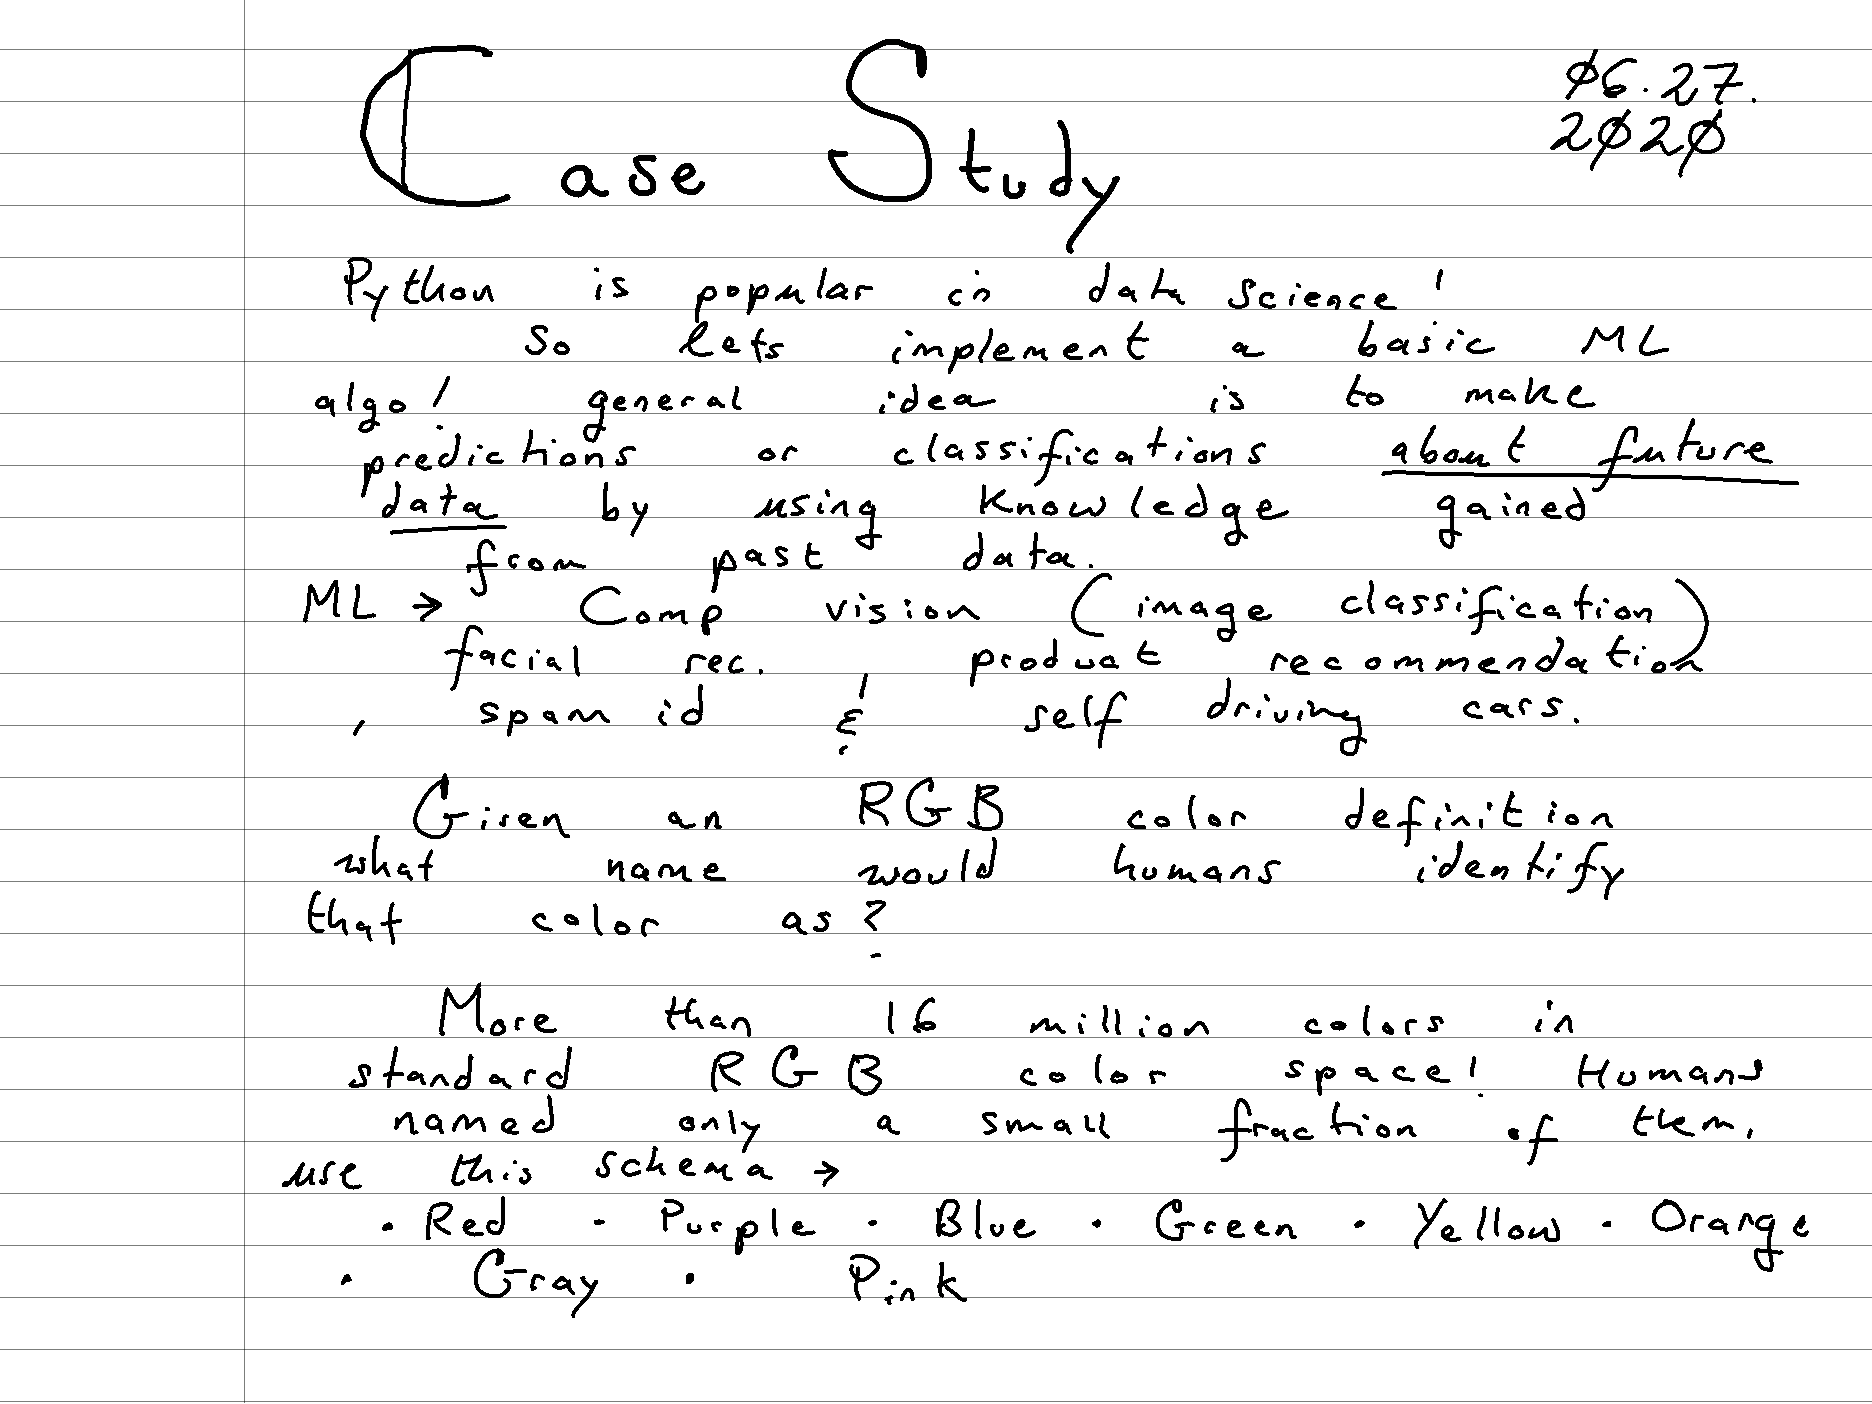 Case Study
06.27.
2020
Python is popular in data science!
So lets implement a basic ML
algo! general idea is to make
predictions or classifications about future
data by using knowledge gained
from past data.
ML → Comp vision (image classification)
facial rec. product recommendation
, spam id & self driving cars.
Given an RGB color definition
what name would humans identify
that color as?
More than 16 million colors in
standard RGB color space! Humans
named only a small fraction of them,
use this schema →
· Red · Purple · Blue · Green · Yellow · Orange
· Gray · Pink